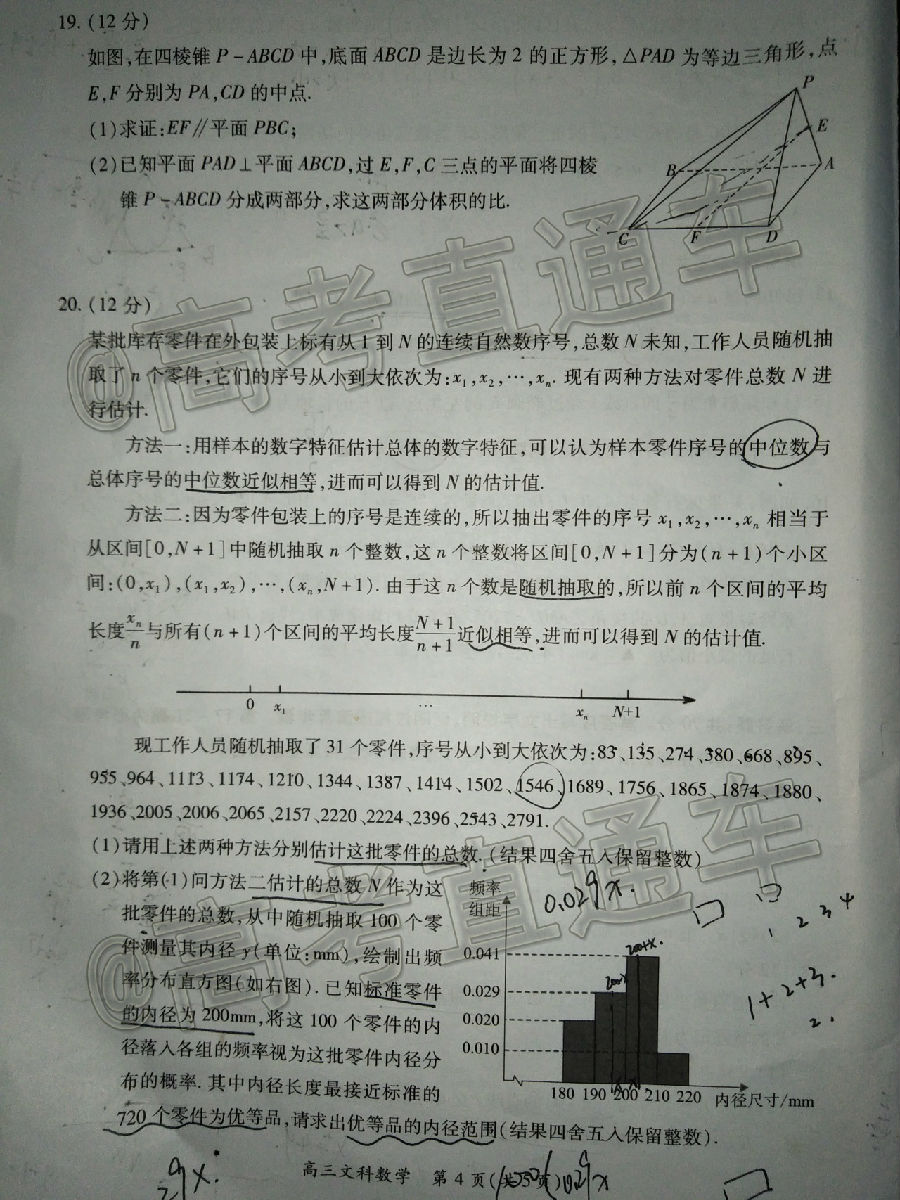 19. (12分)
如图,在四棱锥 P-ABCD 中,底面 ABCD 是边长为 2 的正方形,△PAD 为等边三角形,点
E,F 分别为 PA,CD 的中点.
(1)求证:EF∥平面 PBC;
(2)已知平面 PAD⊥平面 ABCD,过 E,F,C 三点的平面将四棱
锥 P-ABCD 分成两部分,求这两部分体积的比.
P
E
B
A
C
F
D
20. (12分)
某批库存零件在外包装上标有从 1 到 N 的连续自然数序号,总数 N 未知,工作人员随机抽
取了 n 个零件,它们的序号从小到大依次为:x₁,x₂,…,xₙ. 现有两种方法对零件总数 N 进
行估计.
方法一:用样本的数字特征估计总体的数字特征,可以认为样本零件序号的中位数与
总体序号的中位数近似相等,进而可以得到 N 的估计值.
方法二:因为零件包装上的序号是连续的,所以抽出零件的序号 x₁,x₂,…,xₙ 相当于
从区间[0,N+1]中随机抽取 n 个整数,这 n 个整数将区间[0,N+1]分为(n+1)个小区
间:(0,x₁),(x₁,x₂),…,(xₙ,N+1). 由于这 n 个数是随机抽取的,所以前 n 个区间的平均
长度xₙ/n与所有(n+1)个区间的平均长度(N+1)/(n+1)近似相等,进而可以得到 N 的估计值.
0 x₁ … xₙ N+1
现工作人员随机抽取了 31 个零件,序号从小到大依次为:83、135、274、380、668、895、
955、964、1113、1174、1210、1344、1387、1414、1502、1546、1689、1756、1865、1874、1880、
1936、2005、2006、2065、2157、2220、2224、2396、2543、2791.
(1)请用上述两种方法分别估计这批零件的总数.(结果四舍五入保留整数)
(2)将第(1)问方法二估计的总数 N 作为这
批零件的总数,从中随机抽取 100 个零
件测量其内径 y(单位:mm),绘制出频
率分布直方图(如右图). 已知标准零件
的内径为 200mm,将这 100 个零件的内
径落入各组的频率视为这批零件内径分
布的概率. 其中内径长度最接近标准的
720 个零件为优等品,请求出优等品的内径范围(结果四舍五入保留整数).
频率
组距
0.041
0.029
0.020
0.010
180 190 200 210 220 内径尺寸/mm
0.029x.
200-x
200+x.
1 2 3 4
1+2+3.
2.
高三文科数学 第 4 页(共 5 页)
@高考直通车
@高考直通车